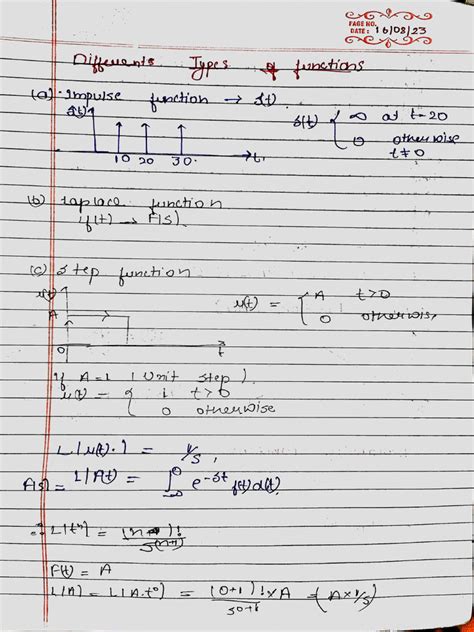 PAGE NO.
DATE : 16/08/23
Differents Types of functions
(a) Impulse function → δ(t)
δ(t)
δ(t) { ∞ at t=20
0 otherwise
t≠0
10 20 30 t
(b) Laplace function
f(t) → F(s)
(c) Step function
u(t)
A
0 t
u(t) = { A t>0
0 otherwis,
If A=1 (Unit step)
u(t) = { 1 t>0
0 otherwise
L[u(t)] = 1/s,
A(s) = L[A(t) = ∫ e^-st f(t)d(t).
∴ L[t^n] = (n+)! / s^(n+1)
F(t) = A
L(A) = L(A.t^0) = (0+1)! × A / s0+1 = (A×1/s)